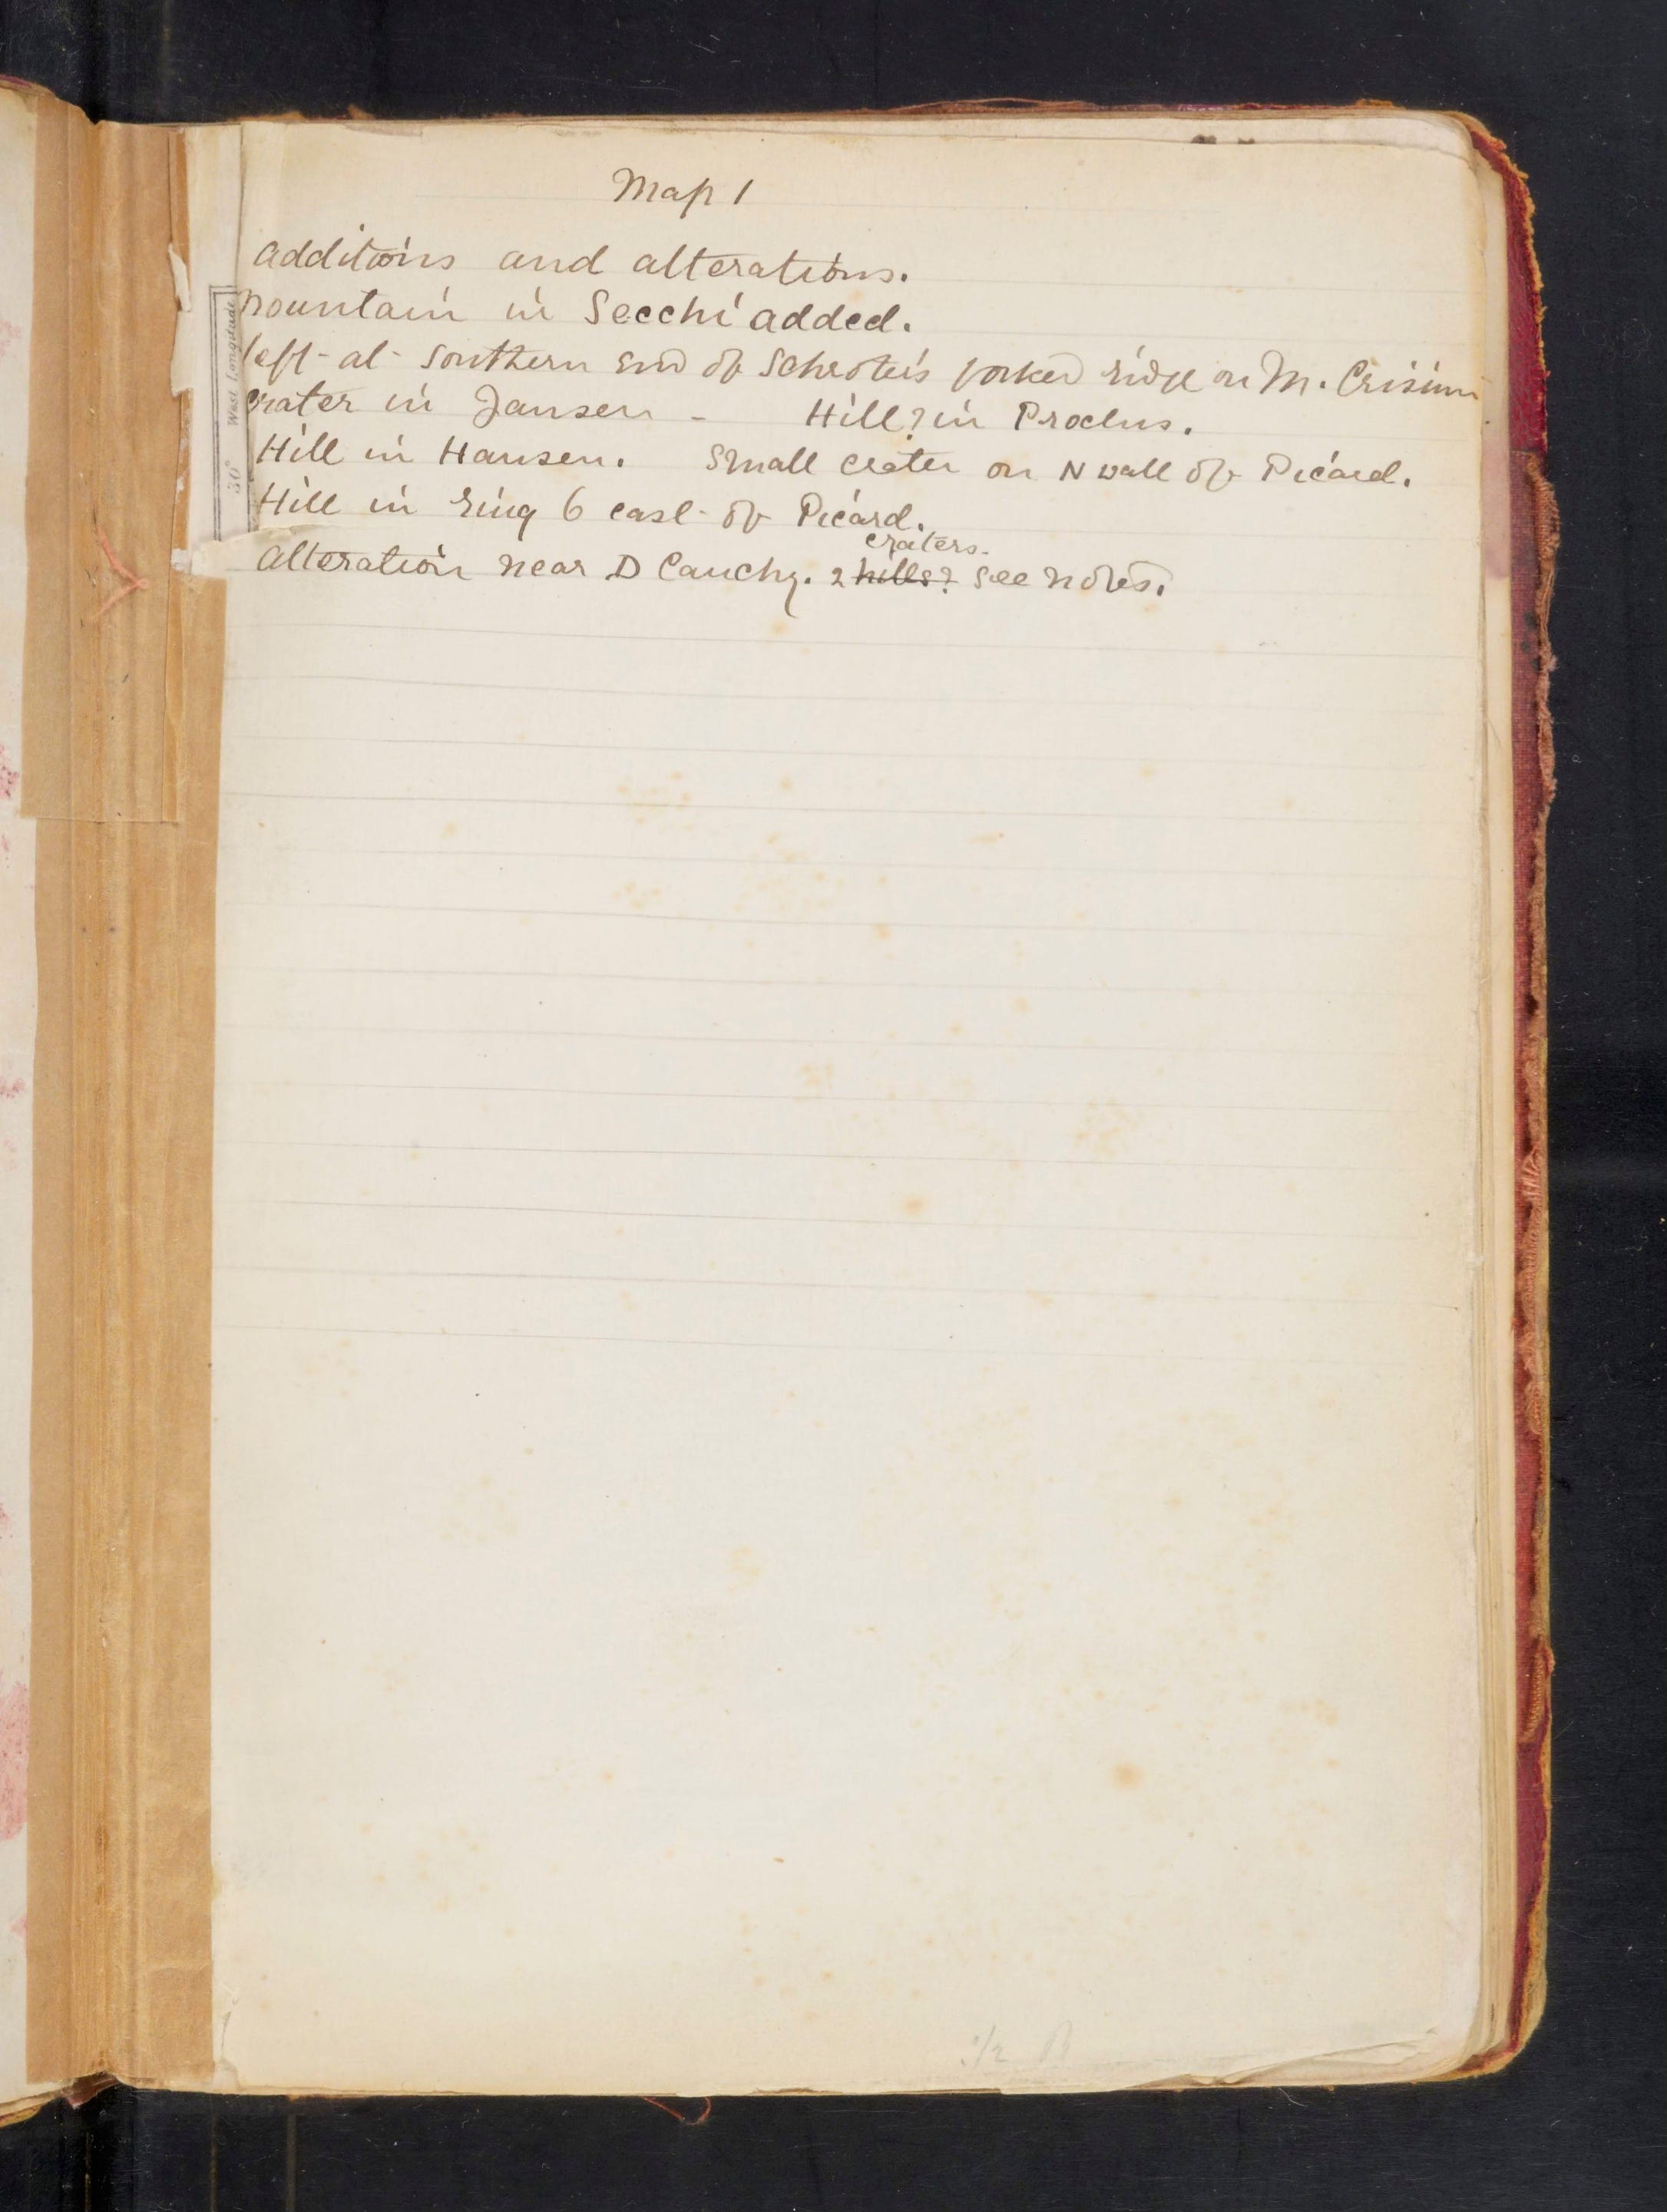 Map 1
Additions and alterations.
Mountain in Secchi added.
left at southern end of Schroter's forked ridge on M. Crisium
Crater in Jansen - Hill? in Proclus.
Hill in Hansen. Small crater on N wall of Picard.
Hill in ring 6 east of Picard.
craters.
Alteration near D Cauchy. 2 hills? See notes.
West Longitude
30°